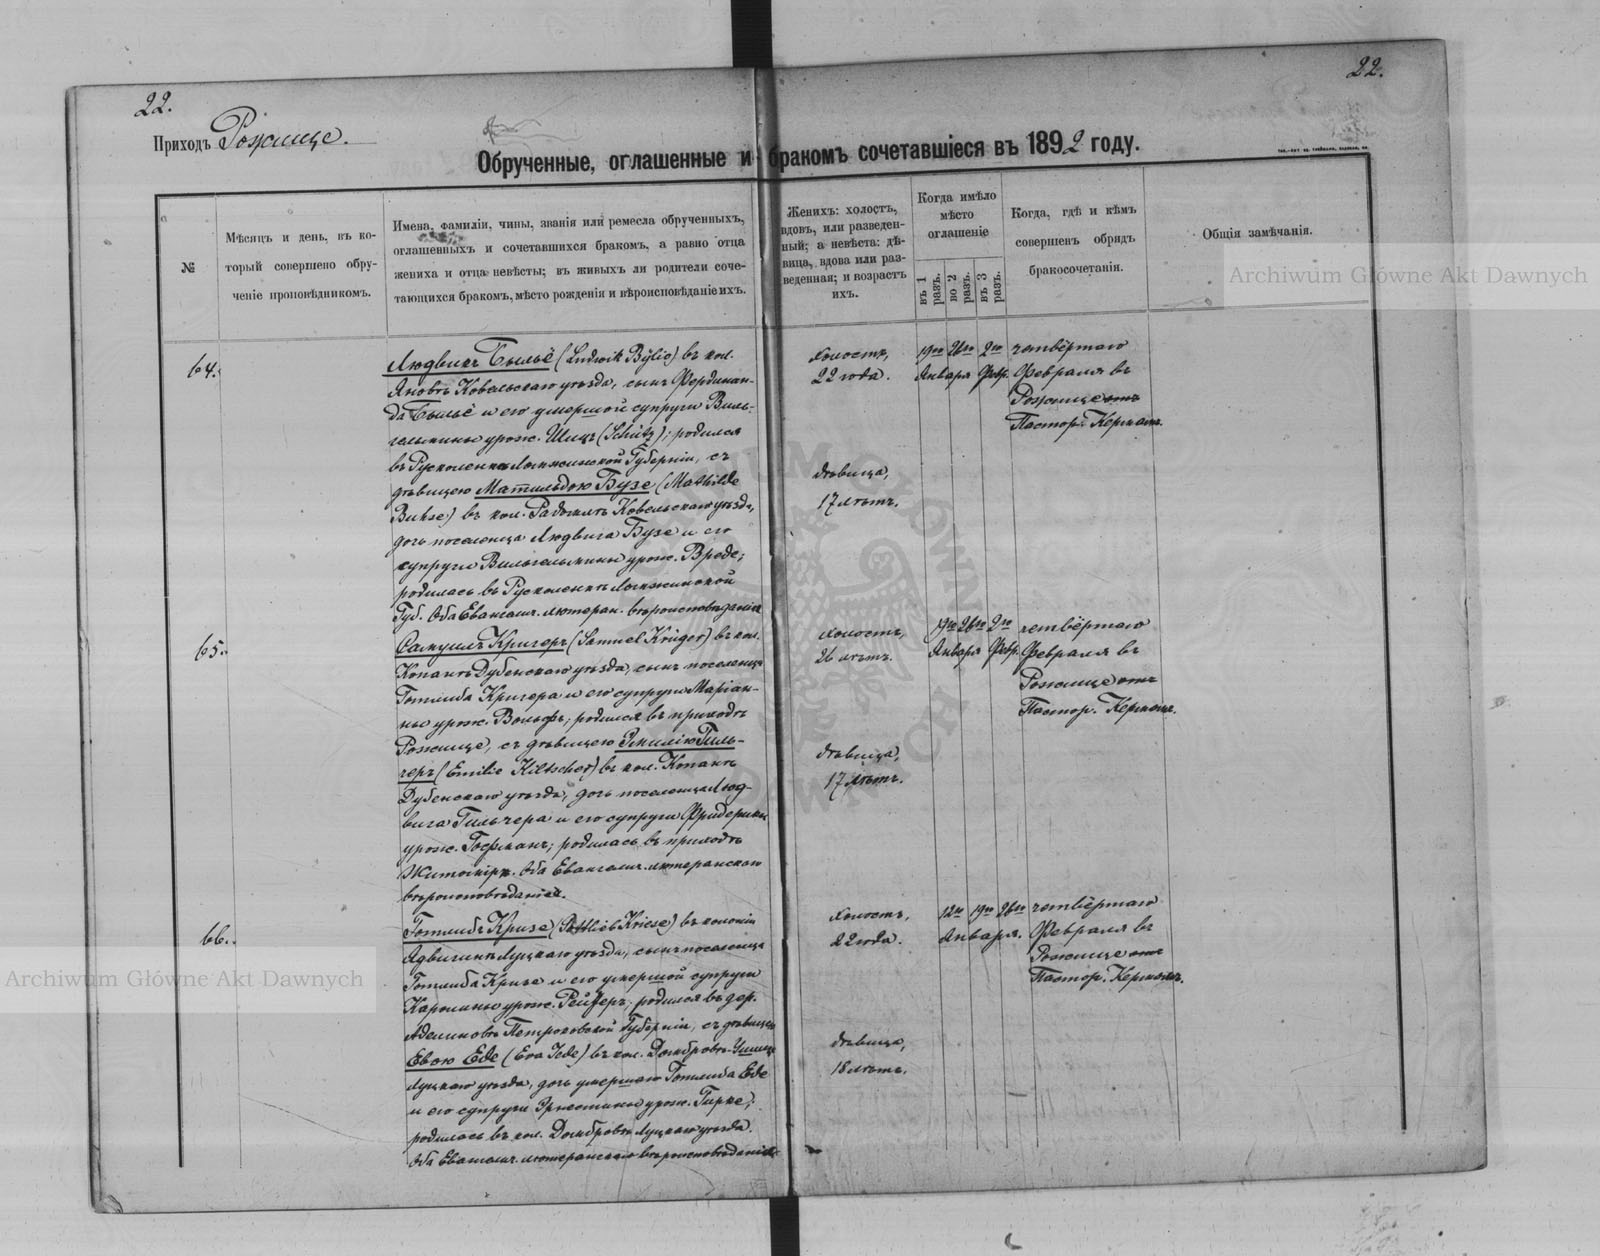 22.
22.
Приходъ Рожище.
Обрученные, оглашенные и бракомъ сочетавшіеся въ 1892 году.
№
Мѣсяцъ и день, въ ко-
торый совершено обру-
ченіе проповѣдникомъ.
Имена, фамиліи, чины, званія или ремесла обрученныхъ,
оглашенныхъ и сочетавшихся бракомъ, а равно отца
жениха и отца невѣсты; въ живыхъ ли родители соче-
тающихся бракомъ, мѣсто рожденія и вѣроисповѣданіе ихъ.
Женихъ: холостъ,
вдовъ, или разведен-
ный; а невѣста: дѣ-
вица, вдова или раз-
веденная; и возрастъ
ихъ.
Когда имѣло
мѣсто
оглашеніе
въ 1
разъ.
во 2
разъ.
въ 3
разъ.
Когда, гдѣ и кѣмъ
совершенъ обрядъ
бракосочетанія.
Общія замѣчанія.
64.
Людвикъ Быльё (Ludwik Bÿlie) въ кол.
Яновкѣ Ковельскаго уѣзда, сынъ Фердинан-
да Быльё и его умершой супруги Виль-
гельмины урож. Шицъ (Schütz); родился
въ Ломжинской Губерніи, съ
дѣвицею Матильдою Бузе (Mathilde
Buhse) въ кол. Ковельскаго уѣзда,
дочь поселенца Людвига Бузе и его
супруги Вильгельмины урож. Вреде;
родилась въ Ломжинской
Губ. Оба Евангелич. лютеран. вѣроисповѣданія
Холостъ,
22 года.
дѣвица,
17 лѣтъ.
19го 26го 2го
Января Февр.
четвёртаго
Февраля въ
Рожище
Пастор. Керномъ.
65.
Самуилъ Кригеръ (Samuel Krüger) въ кол.
Копанѣ Дубенскаго уѣзда, сынъ поселенца
Готлиба Кригера и его супруги Маріан-
ны урож. Вольфъ; родился въ приходѣ
Рожище, съ дѣвицею Эмиліею Гиль-
черъ (Emilie Hiltscher) въ кол. Копанѣ
Дубенскаго уѣзда, дочь поселенца Люд-
вига Гильчера и его супруги Фридерики
урож. Гофманъ; родилась въ приходѣ
Житомиръ. Оба Евангелич. лютеранскаго
вѣроисповѣданія.
Холостъ,
26 лѣтъ.
дѣвица,
17 лѣтъ.
19го 26го 2го
Января Февр.
четвёртаго
Февраля въ
Рожище
Пастор. Керномъ.
66.
Готлибъ Кризе (Gottlieb Kriese) въ колоніи
Ядвининѣ Луцкаго уѣзда, сынъ поселенца
Готлиба Кризе и его умершой супруги
Каролины урож. ; родился въ дер.
Аделиновѣ Петроковской Губерніи, съ дѣвицею
Евою Еде (Eva Jede) въ кол. Домбровѣ
Луцкаго уѣзда, дочь умершаго Готлиба Еде
и его супруги Эрнестины урож. Гирке;
родилась въ кол. Домбровѣ Луцкаго уѣзда.
Оба Евангелич. лютеранскаго вѣроисповѣданія
Холостъ,
22 года.
дѣвица,
18 лѣтъ.
12го 19го 26го
Января.
четвёртаго
Февраля въ
Рожище
Пастор. Керномъ.
Archiwum Główne Akt Dawnych
Archiwum Główne Akt Dawnych